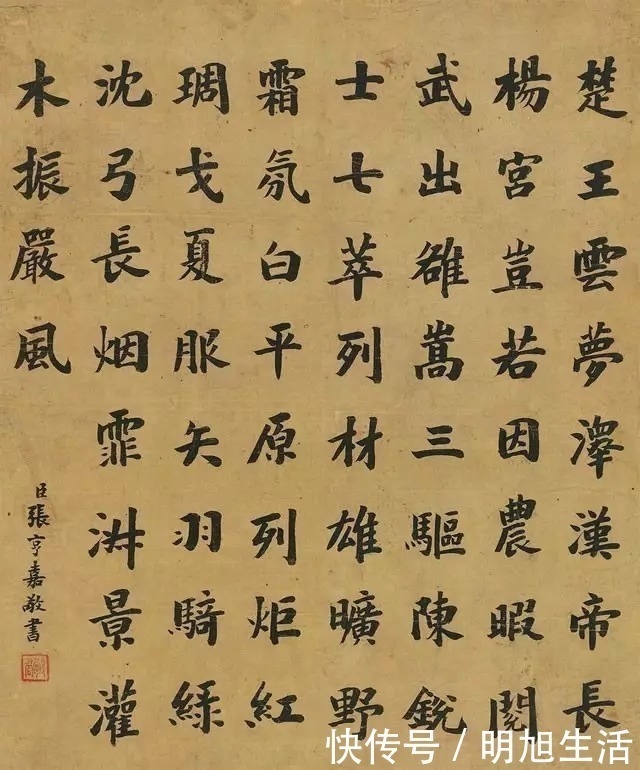 楚王雲夢澤漢帝長
楊宮豈若因農暇閱
武出雒嵩三驅陳銳
士七萃列材雄曠野
霜氛白平原列炬紅
琱戈夏服矢羽騎綠
沈弓長烟霏景灌
木振嚴風
臣張亨嘉敬書
快传号/明旭生活